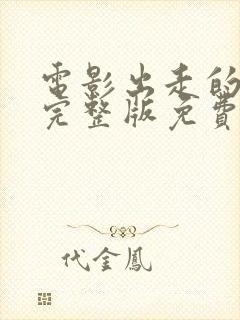 電影出走的
完整版免費
代金鳳